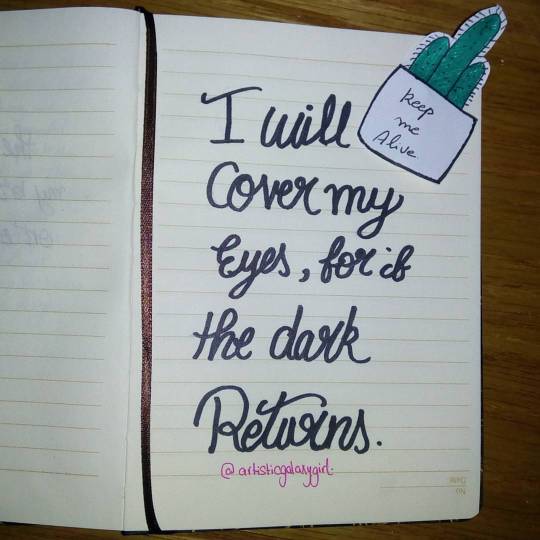 I will
Cover my
Eyes, for if
the dark
Returns.
@artisticgalaxygirl.
Keep
me
Alive.
No
Date